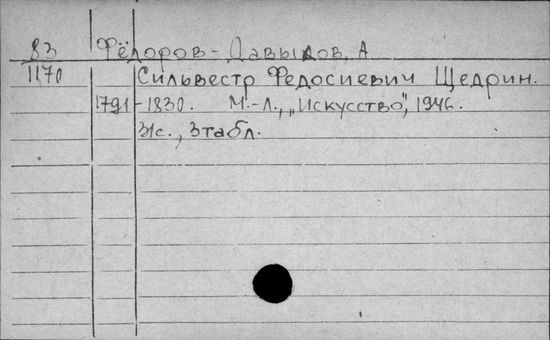 83 Фёдоров-Давыдов, А
1170 Сильвестр Федосиевич Щедрин.
1791-1830. М.-Л., „Искусство", 1946.
31с., 3табл.